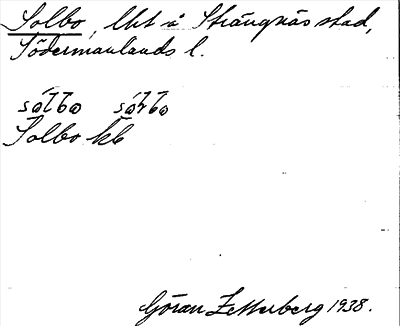 Solbo, lht i Strängnäs stad,
Södermanlands l.
Solbo kb
Göran Zetterberg 1938.